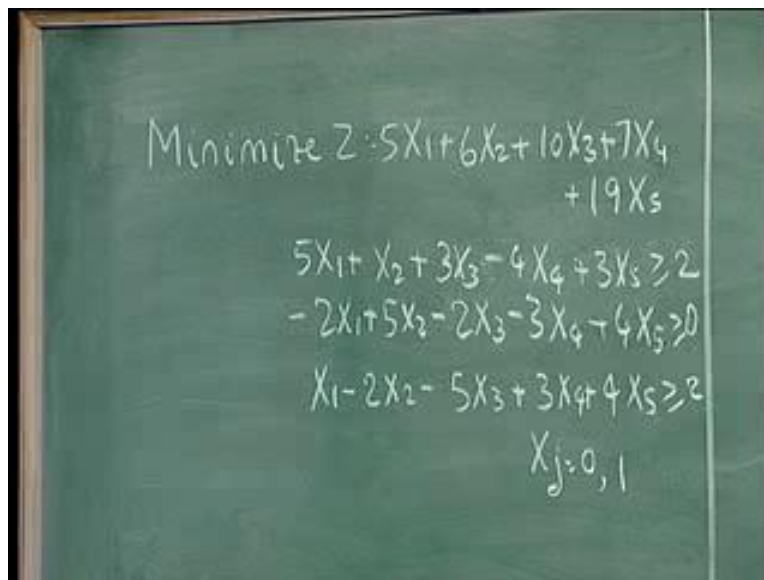 Minimize Z:5X1+6X2+10X3+7X4
+19X5
5X1+X2+3X3-4X4+3X5≥2
-2X1+5X2-2X3-3X4-4X5≥0
X1-2X2-5X3+3X4+4X5≥2
Xj=0,1